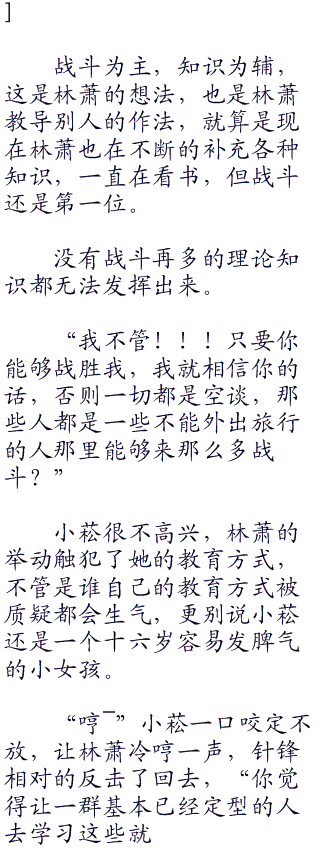 ]
战斗为主，知识为辅，
这是林萧的想法，也是林萧
教导别人的作法，就算是现
在林萧也在不断的补充各种
知识，一直在看书，但战斗
还是第一位。
没有战斗再多的理论知
识都无法发挥出来。
“我不管！！！只要你
能够战胜我，我就相信你的
话，否则一切都是空谈，那
些人都是一些不能外出旅行
的人那里能够来那么多战
斗？”
小菘很不高兴，林萧的
举动触犯了她的教育方式，
不管是谁自己的教育方式被
质疑都会生气，更别说小菘
还是一个十六岁容易发脾气
的小女孩。
“哼¯”小菘一口咬定不
放，让林萧冷哼一声，针锋
相对的反击了回去，“你觉
得让一群基本已经定型的人
去学习这些就